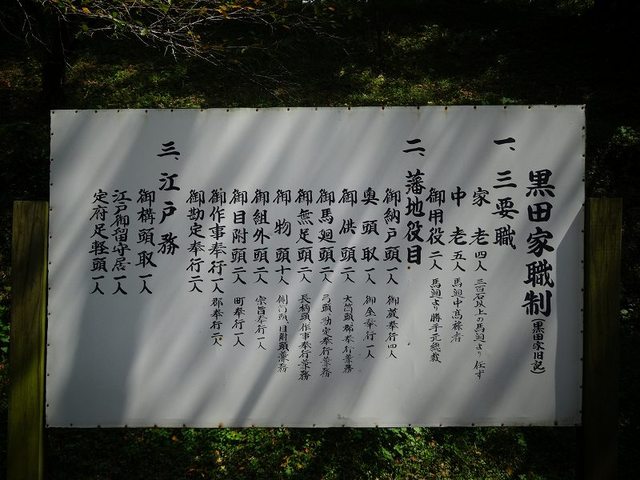 黒田家職制(黒田家旧記)
一、三要職
家老四人 三百石以上の馬廻より任ず
中老五人 馬廻中高禄者
御用役二人 馬廻より勝手元総裁
二、藩地役目
御納戸頭一人 御蔵奉行四人
奥頭取一人 御金奉行二人
御供頭二人 大筒頭郡奉行兼務
御馬廻頭二人 弓頭勘定奉行兼務
御無足頭二人 長柄頭作事奉行兼務
御物頭十人 目附頭兼務
御組外頭二人 宗旨奉行一人
御目附頭二人 町奉行二人
御作事奉行一人 郡奉行二人
御勘定奉行二人
三、江戸務
御構頭取一人
江戸御留守居一人
定府足軽頭一人